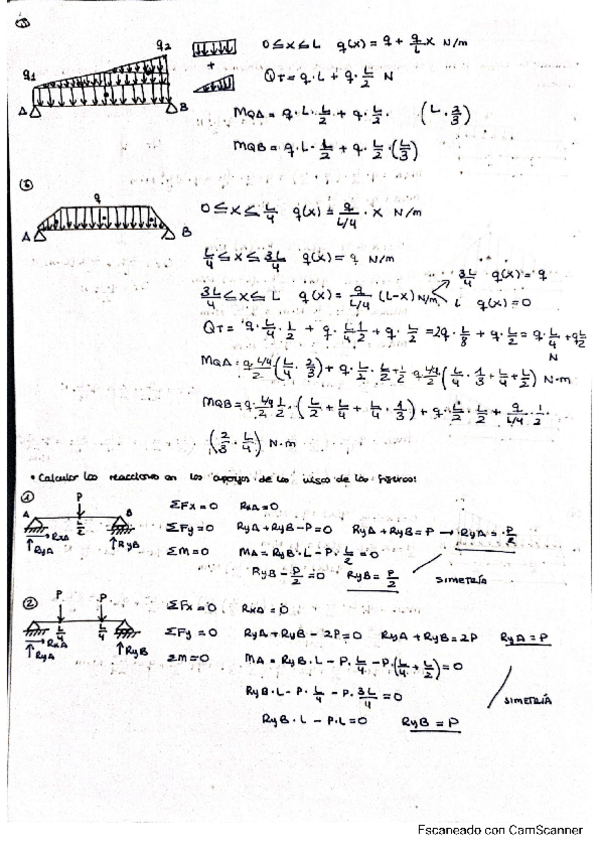 q2
0 ≤ x ≤ L q(x) = q + q/L x N/m
q1
+
QT = q·L + q·L/2 N
A B
MQA = q·L·L/2 + q·L/2· (L·2/3)
MQB = q·L·L/2 + q·L/2·(L/3)
③
q
A B
0 ≤ x ≤ L/4 q(x) = q/(L/4) · x N/m
L/4 ≤ x ≤ 3L/4 q(x) = q N/m
3L/4 ≤ x ≤ L q(x) = q/(L/4) (L-x) N/m
3L/4 q(x) = q
L q(x) = 0
QT = q·L/4·1/2 + q·L/4·1/2 + q·L/2 = 2q·L/8 + q·L/2 = q·L/4 + qL/2
N
MQA = q·L/4/2 (L/4·2/3) + q·L/2·L/2 + 1/2 q L/4/2 (L/4·1/3 + L/4 + L/2) N·m
MQB = 1/2·(L/2 + L/4 + L/4·1/3) + q·L/2·L/2 + q/L/4·1/2·
(2/3·L/4) N·m
• Calcular las reacciones en los apoyos de las
① P
A B
L/2
RxA
RyA RyB
ΣFx = 0 RxA = 0
ΣFy = 0 RyA + RyB - P = 0 RyA + RyB = P → RyA = P/2
ΣM = 0 MA = RyB·L - P·L/2 = 0
RyB - P/2 = 0 RyB = P/2
SIMETRÍA
② P P
L/4 L/4
RxA
RyA RyB
ΣFx = 0 RxA = 0
ΣFy = 0 RyA + RyB - 2P = 0 RyA + RyB = 2P RyA = P
ΣM = 0 MA = RyB·L - P·L/4 - P·(L/4 + L/2) = 0
RyB·L - P·L/4 - P·3L/4 = 0
SIMETRÍA
RyB·L - P·L = 0 RyB = P
Escaneado con CamScanner